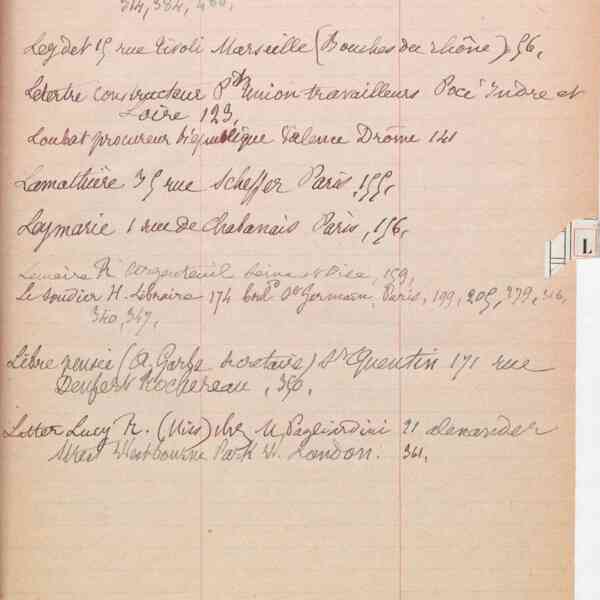 314, 384, 480.
Leydet 15 rue Rivoli Marseille (Bouches du rhône) 56,
Letertre constructeur Pdt Union travailleurs Pocé Indre et
Loire 123,
Loubat procureur République Valence Drôme 141
Lamathière 35 rue Scheffer Paris, 155,
Leymarie 1 rue de Chabanais Paris, 156,
L
Lemaire à Argenteuil Seine et Oise, 159,
Le Soudier H. Libraire 174 bvd St Germain, Paris, 199, 205, 379, 316,
340, 347,
Libre pensée (A. Garbe secrétaire) St Quentin 171 rue
Denfert Rochereau, 350,
Litter Lucy K. (Miss) chez M Pagliardini 21 alexander
Street Westbourne Park W. London. 361,